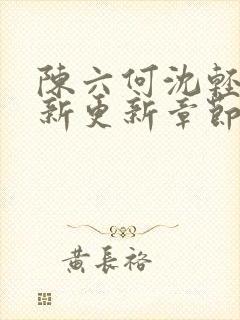 陳六何沈輕
新更新章節
黃長裕